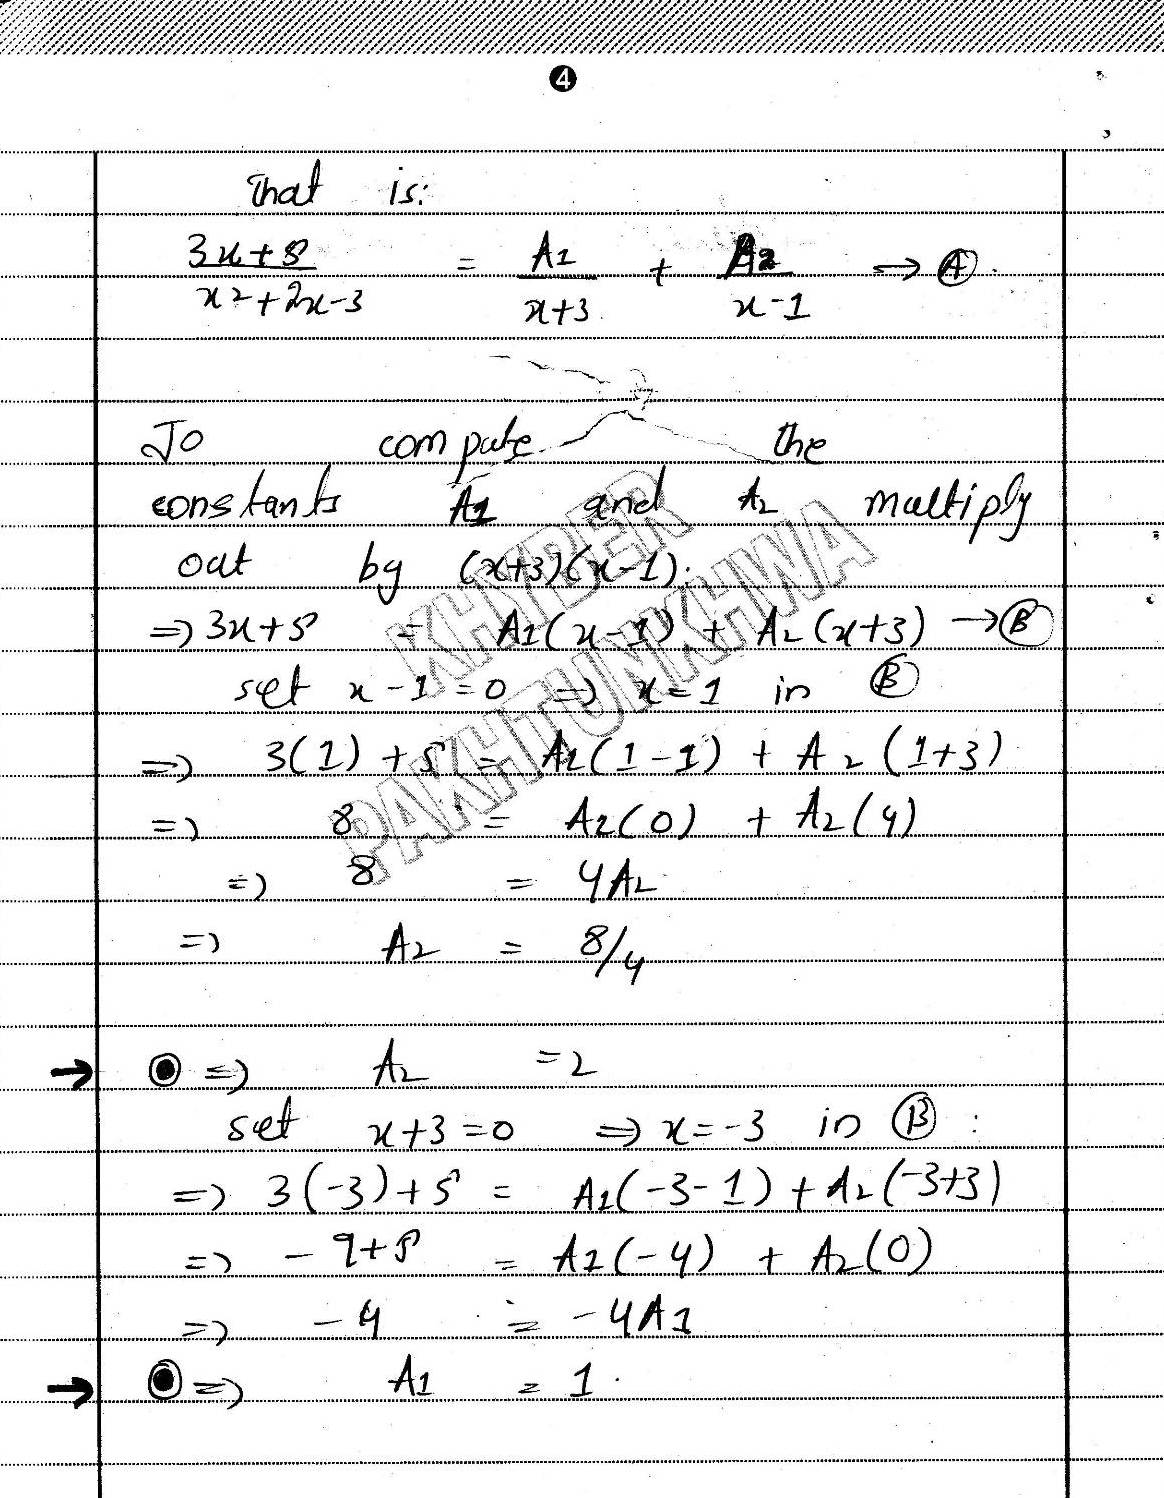 4
That is:
3x+5 / x²+2x-3 = A1 / x+3 + A2 / x-1 → (A).
To compute the
constants A1 and A2 multiply
out by (x+3)(x-1).
=> 3x+5 = A1(x-1) + A2(x+3) → (B)
set x-1=0 => x=1 in (B)
=> 3(1)+5 = A1(1-1) + A2(1+3)
=> 8 = A2(0) + A2(4)
=> 8 = 4A2
=> A2 = 8/4
→ ⦿ => A2 =2
set x+3=0 => x=-3 in (B) :
=> 3(-3)+5 = A1(-3-1)+A2(-3+3)
=> -9+5 = A1(-4) + A2(0)
=> -4 = -4A1
→ ⦿ => A1 = 1.
KHYBER
PAKHTUNKHWA